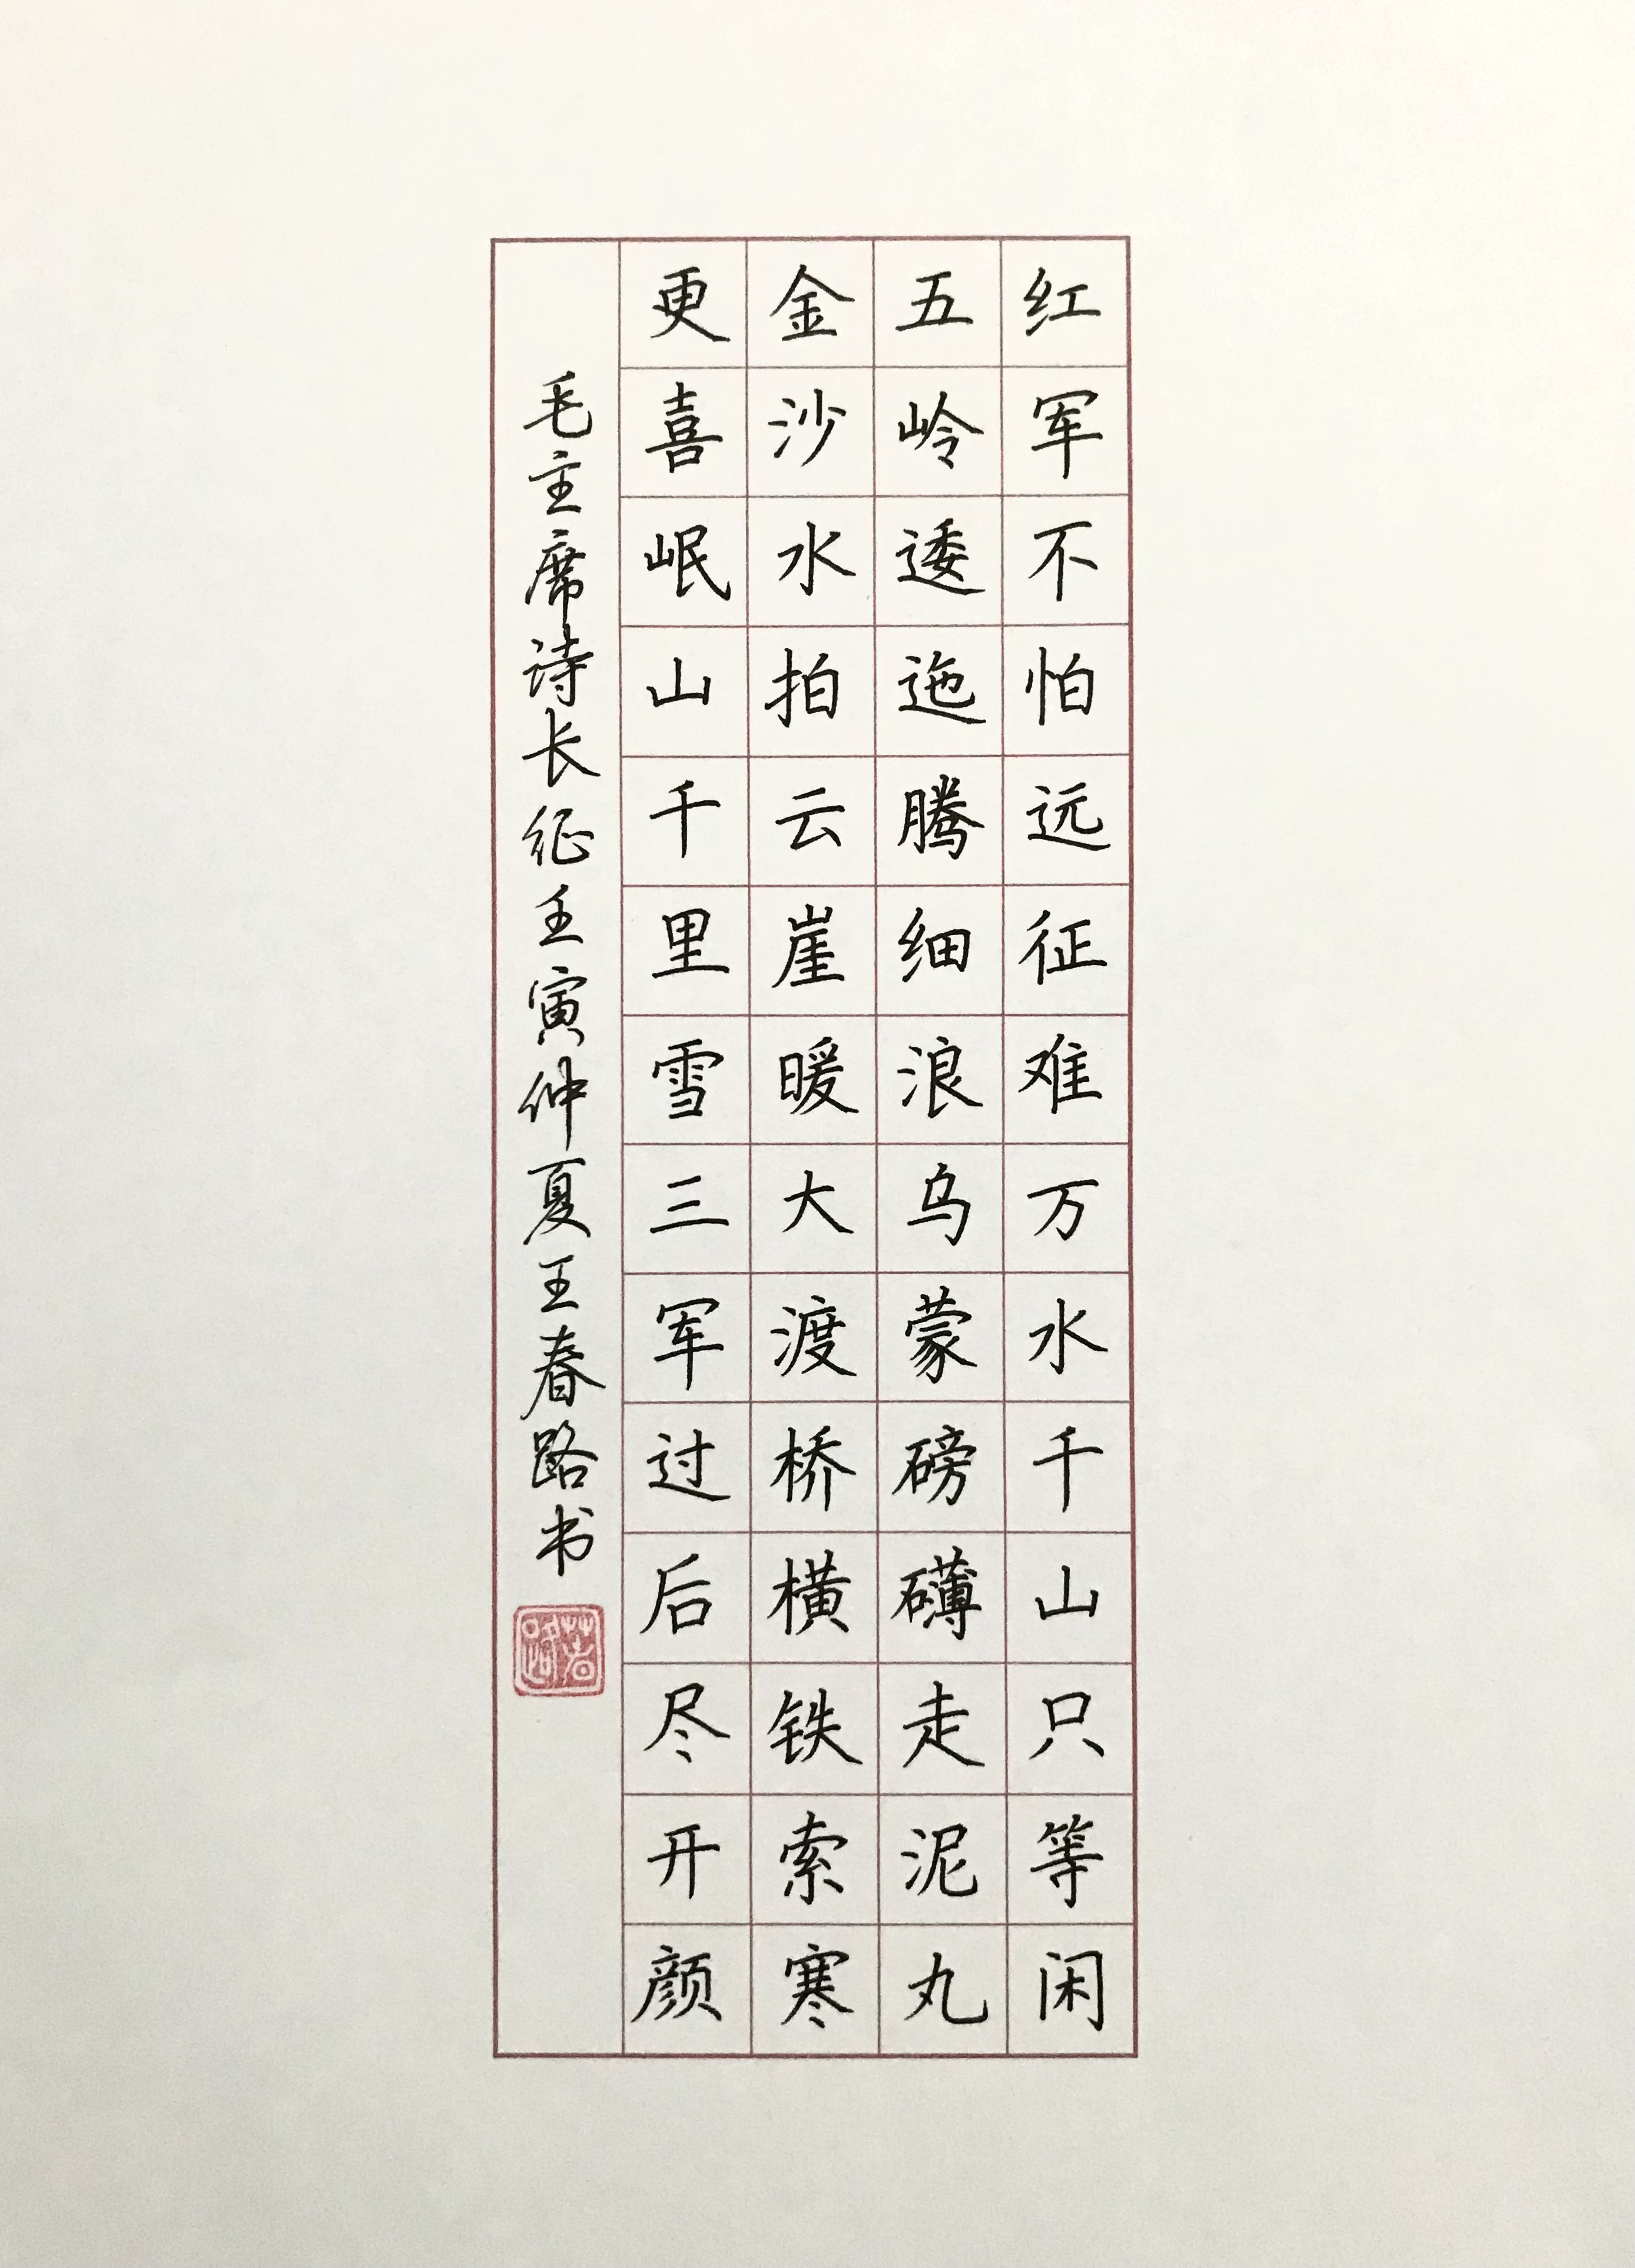 红军不怕远征难万水千山只等闲
五岭逶迤腾细浪乌蒙磅礴走泥丸
金沙水拍云崖暖大渡桥横铁索寒
更喜岷山千里雪三军过后尽开颜
毛主席诗长征壬寅仲夏王春路书